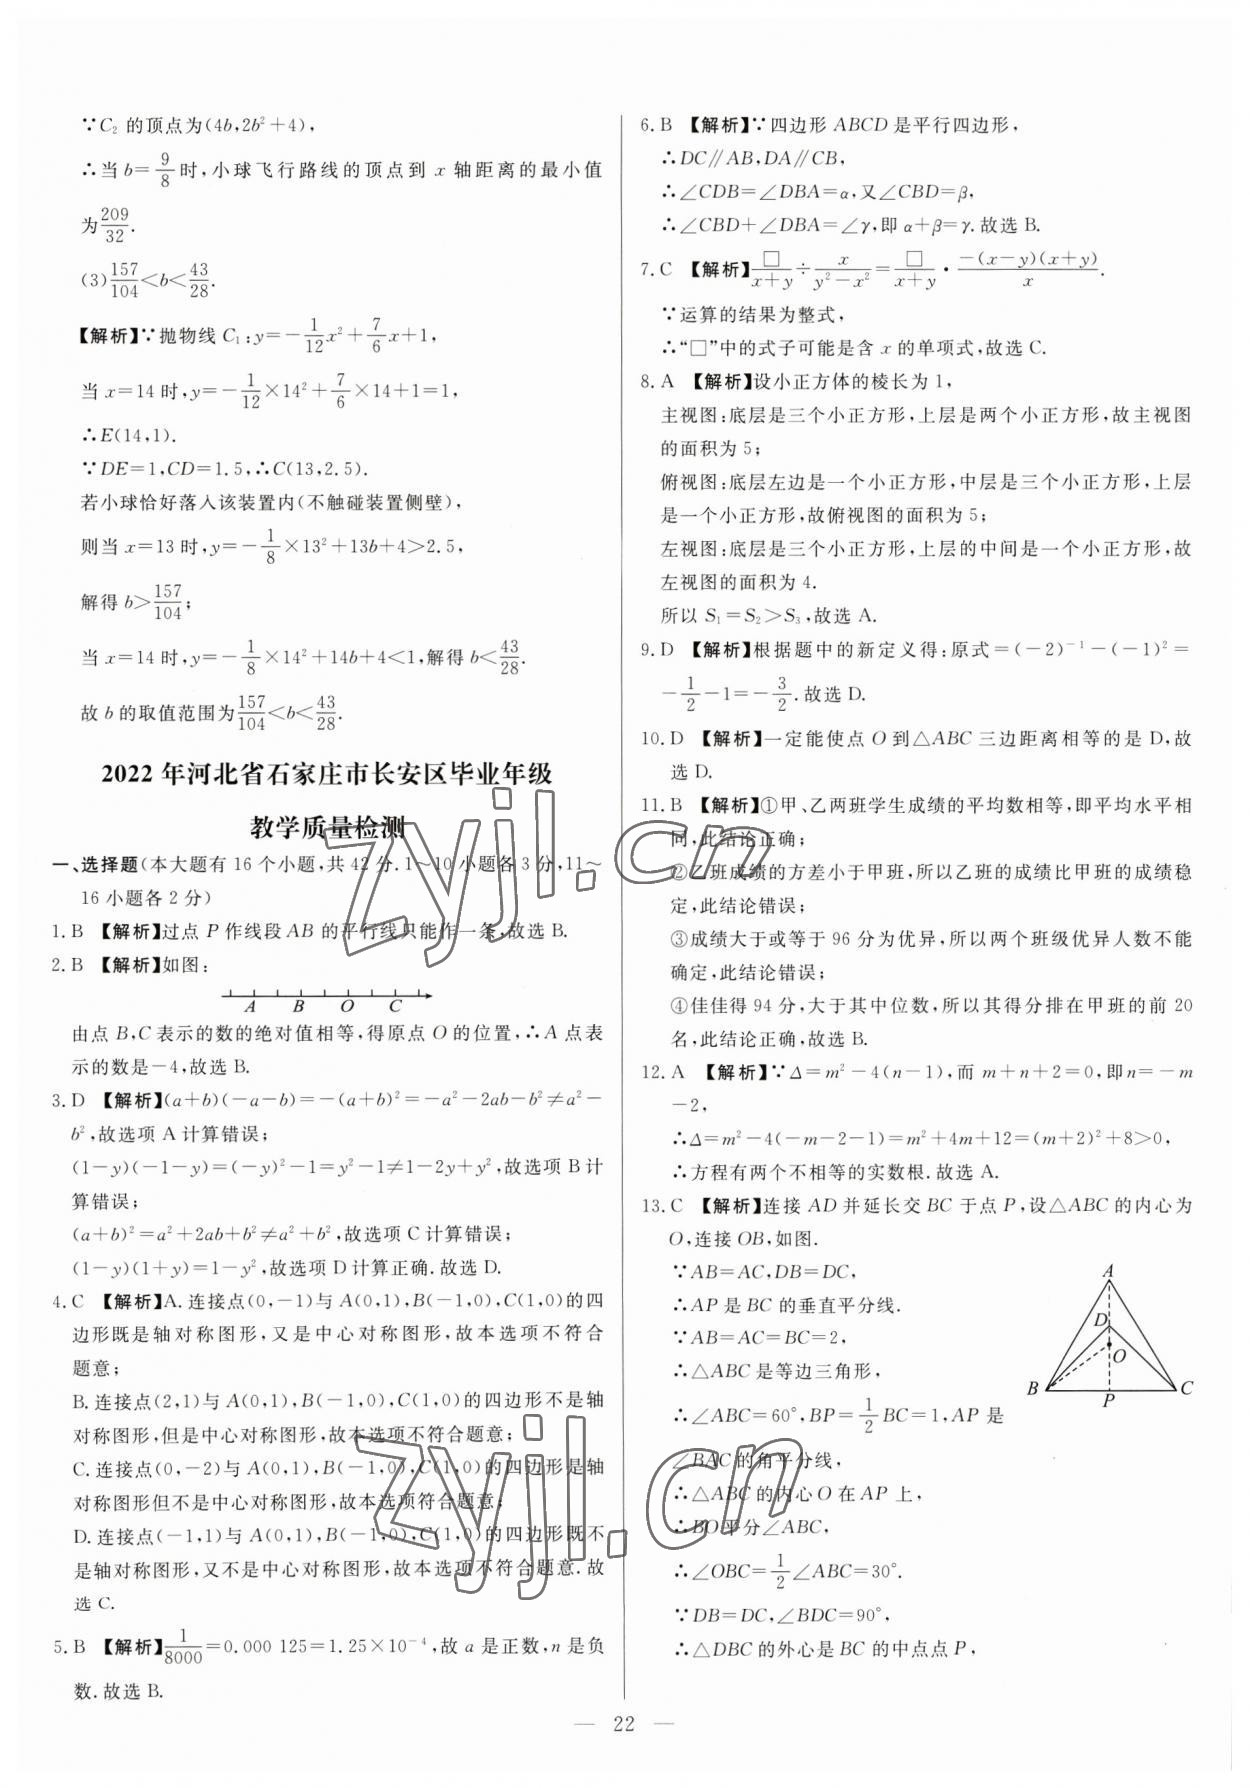 ∵C₂ 的顶点为(4b,2b²+4),
∴当 b=9/8 时,小球飞行路线的顶点到 x 轴距离的最小值
为209/32.
(3)157/104<b<43/28.
【解析】∵抛物线 C₁:y=-1/12x²+7/6x+1,
当 x=14 时,y=-1/12×14²+7/6×14+1=1,
∴E(14,1).
∵DE=1,CD=1.5,∴C(13,2.5).
若小球恰好落入该装置内(不触碰装置侧壁),
则当 x=13 时,y=-1/8×13²+13b+4>2.5,
解得 b>157/104;
当 x=14 时,y=-1/8×14²+14b+4<1,解得 b<43/28.
故 b 的取值范围为157/104<b<43/28.
2022 年河北省石家庄市长安区毕业年级
教学质量检测
一、选择题(本大题有 16 个小题,共 42 分.1～10 小题各 3 分,11～
16 小题各 2 分)
1. B 【解析】过点 P 作线段 AB 的平行线只能作一条,故选 B.
2. B 【解析】如图:
A B O C
由点 B,C 表示的数的绝对值相等,得原点 O 的位置,∴A 点表
示的数是-4,故选 B.
3. D 【解析】(a+b)(-a-b)=-(a+b)²=-a²-2ab-b²≠a²-
b²,故选项 A 计算错误;
(1-y)(-1-y)=(-y)²-1=y²-1≠1-2y+y²,故选项 B 计
算错误;
(a+b)²=a²+2ab+b²≠a²+b²,故选项 C 计算错误;
(1-y)(1+y)=1-y²,故选项 D 计算正确.故选 D.
4. C 【解析】A. 连接点(0,-1)与 A(0,1),B(-1,0),C(1,0)的四
边形既是轴对称图形,又是中心对称图形,故本选项不符合
题意;
B. 连接点(2,1)与 A(0,1),B(-1,0),C(1,0)的四边形不是轴
对称图形,但是中心对称图形,故本选项不符合题意;
C. 连接点(0,-2)与 A(0,1),B(-1,0),C(1,0)的四边形是轴
对称图形但不是中心对称图形,故本选项符合题意;
D. 连接点(-1,1)与 A(0,1),B(-1,0),C(1,0)的四边形既不
是轴对称图形,又不是中心对称图形,故本选项不符合题意.故
选 C.
5. B 【解析】1/8000=0.000 125=1.25×10⁻⁴,故 a 是正数,n 是负
数.故选 B.
6. B 【解析】∵四边形 ABCD 是平行四边形,
∴DC∥AB,DA∥CB,
∴∠CDB=∠DBA=α,又∠CBD=β,
∴∠CBD+∠DBA=∠γ,即 α+β=γ.故选 B.
7. C 【解析】□/(x+y)÷x/(y²-x²)=□/(x+y)·-(x-y)(x+y)/x.
∵运算的结果为整式,
∴“□”中的式子可能是含 x 的单项式,故选 C.
8. A 【解析】设小正方体的棱长为 1,
主视图:底层是三个小正方形,上层是两个小正方形,故主视图
的面积为 5;
俯视图:底层左边是一个小正方形,中层是三个小正方形,上层
是一个小正方形,故俯视图的面积为 5;
左视图:底层是三个小正方形,上层的中间是一个小正方形,故
左视图的面积为 4.
所以 S₁=S₂>S₃,故选 A.
9. D 【解析】根据题中的新定义得:原式=(-2)⁻¹-(-1)²=
-1/2-1=-3/2.故选 D.
10. D 【解析】一定能使点 O 到△ABC 三边距离相等的是 D,故
选 D.
11. B 【解析】①甲、乙两班学生成绩的平均数相等,即平均水平相
同,此结论正确;
②乙班成绩的方差小于甲班,所以乙班的成绩比甲班的成绩稳
定,此结论错误;
③成绩大于或等于 96 分为优异,所以两个班级优异人数不能
确定,此结论错误;
④佳佳得 94 分,大于其中位数,所以其得分排在甲班的前 20
名,此结论正确,故选 B.
12. A 【解析】∵Δ=m²-4(n-1),而 m+n+2=0,即n=-m
-2,
∴Δ=m²-4(-m-2-1)=m²+4m+12=(m+2)²+8>0,
∴方程有两个不相等的实数根.故选 A.
13. C 【解析】连接 AD 并延长交 BC 于点 P,设△ABC 的内心为
O,连接 OB,如图.
∵AB=AC,DB=DC,
∴AP 是 BC 的垂直平分线.
∵AB=AC=BC=2,
∴△ABC 是等边三角形,
∴∠ABC=60°,BP=1/2BC=1,AP 是
∠BAC 的角平分线,
∴△ABC 的内心 O 在 AP 上,
∴BO平分∠ABC,
∴∠OBC=1/2∠ABC=30°.
∵DB=DC,∠BDC=90°,
∴△DBC 的外心是 BC 的中点点 P,
A
D
O
B P C
— 22 —
zyjl.cn
zyjl.cn